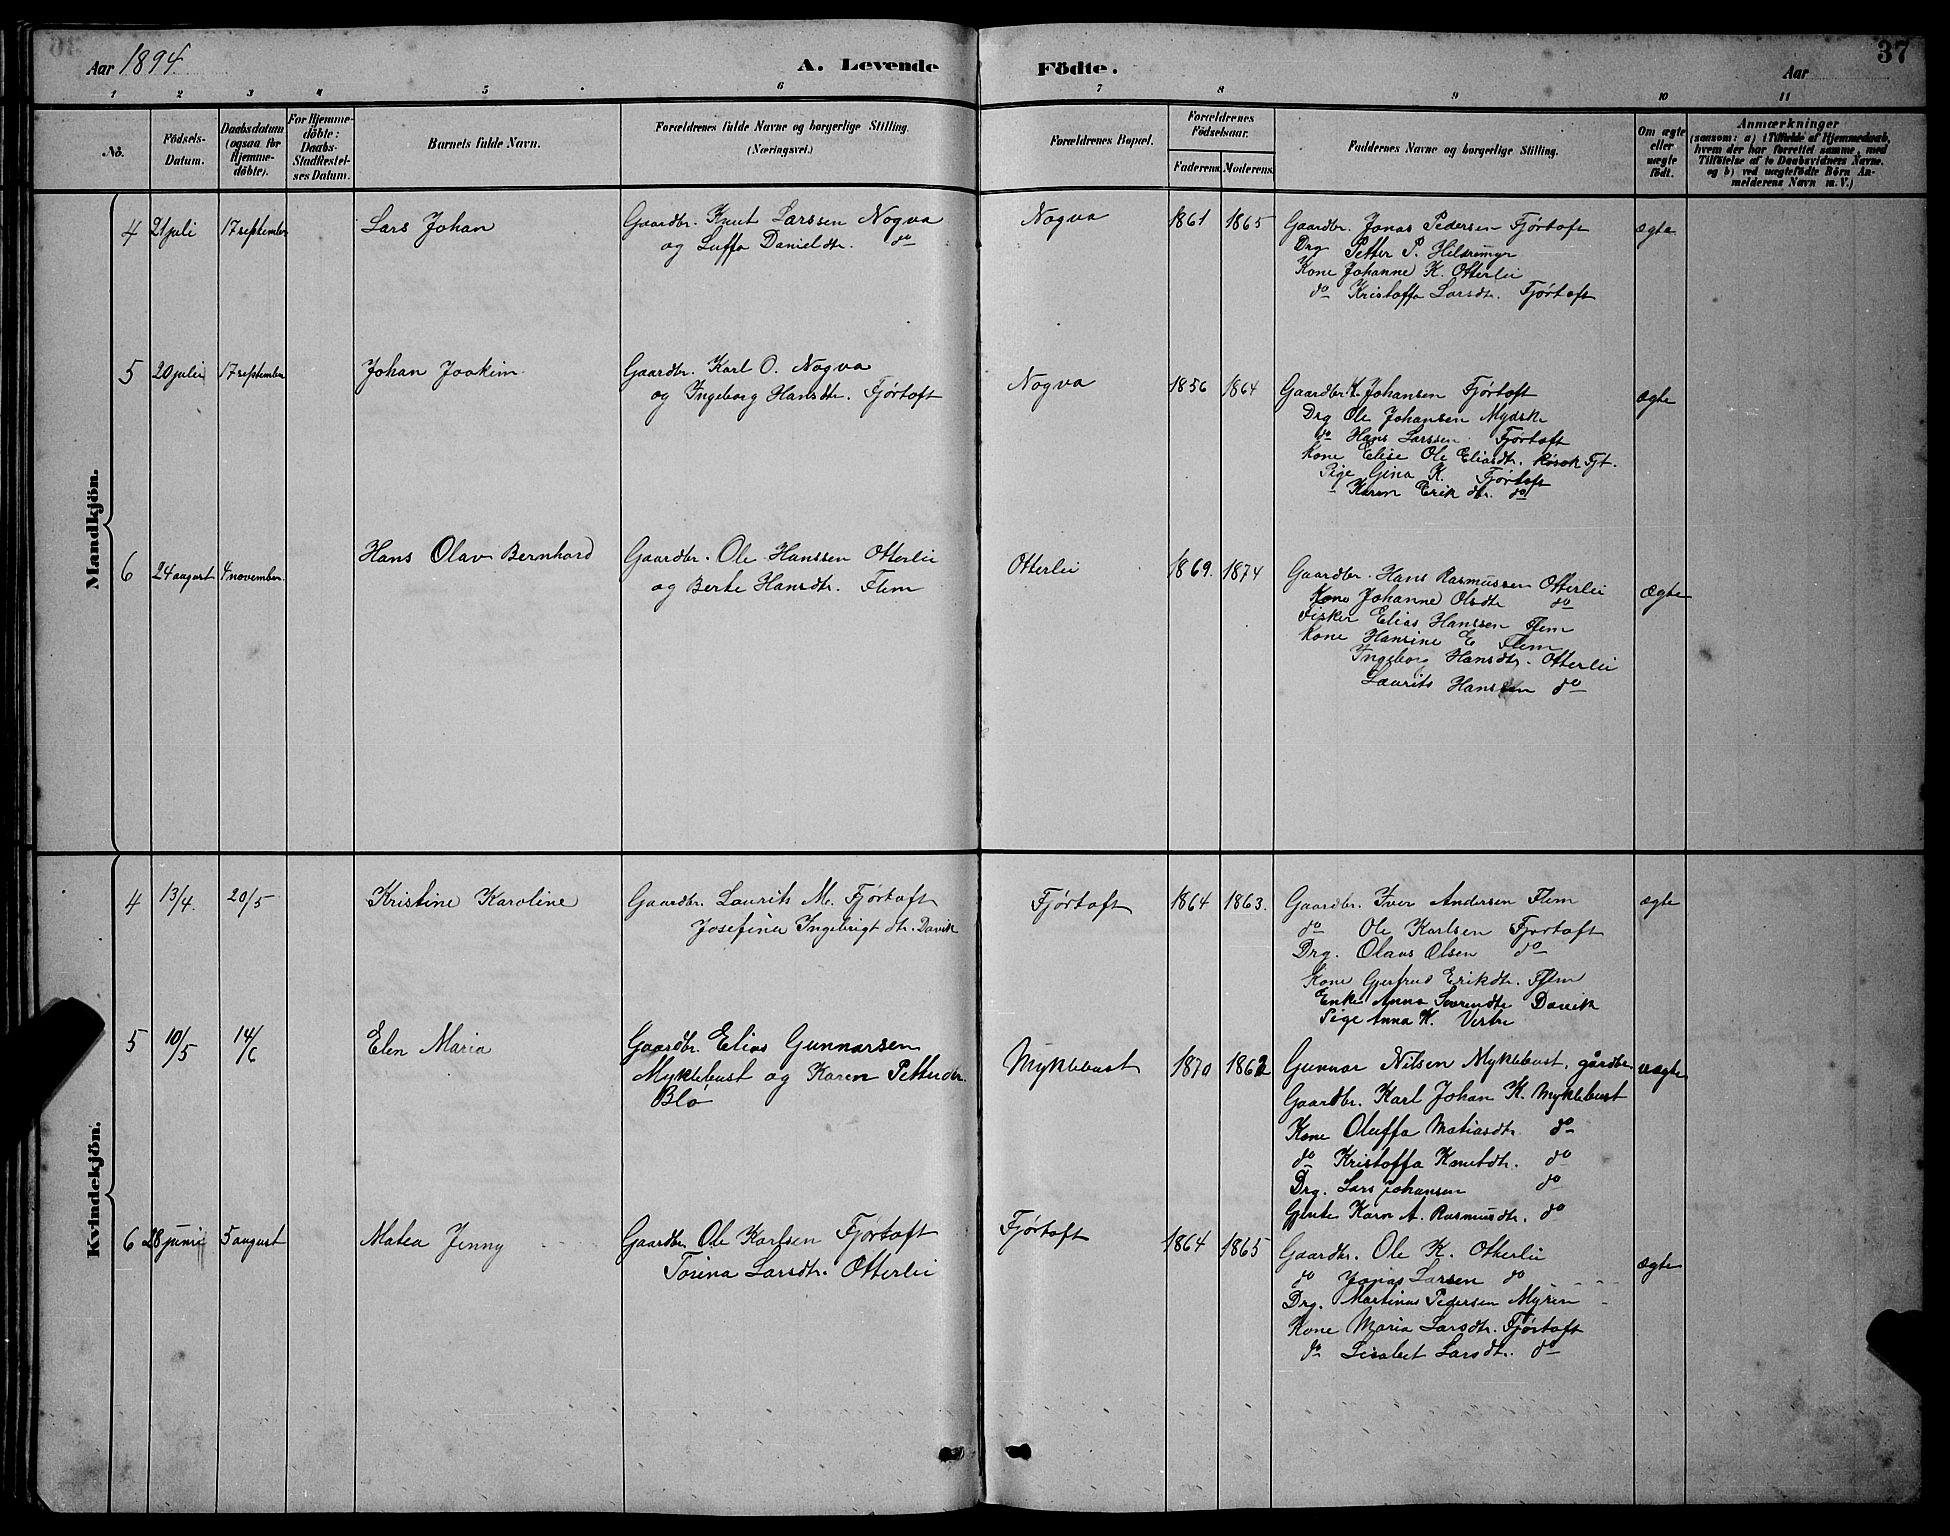 Aar 1894.
A. Levende Födte.
37
Aar
1 2 3 4 5 6 7 8 9 10 11
No.
Födsels-Datum.
Daabsdatum (ogsaa for Hjemme-döbte).
For Hjemme-döbte: Daabs-Stadfestel-ses Datum.
Barnets fulde Navn.
Forældrenes fulde Navne og borgerlige Stilling. (Næringsvei.)
Forældrenes Bopæl.
Forældrenes Födselsaar.
Faderens. Moderens.
Faddernes Navne og borgerlige Stilling.
Om ægte eller uægte födt.
Anmærkninger
(saasom: a) i Tilfælde af Hjemmedaab, hvem der har forrettet samme, med Tilföielse af to Daabsvidners Navne. og b) ved uægtefödte Börn An-melderens Navn m. V.)
Mandkjön.
4 21 juli 17 september Lars Johan
Gaardbr. Knut Larssen Nogva
og Luffa Danieldtr. do
Nogva 1861 1865
Gaardbr. Jonas Pedersen Fjørtoft
Drg Petter P. Hildremyr
Kone Johanne K. Otterlei
do Kristoffa Larsdtr. Fjørtoft
ægte
5 20 juli 17 september Johan Joakim
Gaardbr. Karl O. Nogva
og Ingeborg Hansdtr. Fjørtoft
Nogva 1856 1864
Gaardbr. K. Johansen Fjørtoft
Drg Ole Johansen Mydsk
do Hans Larssen Fjørtoft
Kone Elise Ole Eliasdtr. Fjt.
Pige Gina K. Fjørtoft
- Karen Erik dtr. do
ægte
6 24 august 4 november. Hans Olav Bernhard
Gaardbr. Ole Hanssen Otterlei
og Berte Hansdtr. Flem
Otterlei 1869. 1874
Gaardbr. Hans Rasmussen Otterlei
Kone Johanne Olsdtr do
Fisker Elias Hanssen Flem
Kone Hansine E Flem
Ingeborg Hansdtr. Otterlei
Laurits Hanssen do
ægte
Kvindekjön.
4 13/4. 20/5 Kristine Karoline
Gaardbr. Laurits M. Fjørtoft
Josefina Ingebrigt dtr. Davik
Fjørtoft 1864 1863.
Gaardbr. Iver Andersen Flem
do Ole Karlsen Fjørtoft
Drg. Olaus Olsen do
Kone Gjertrud Erikdtr. Flem
Enke Anna Sørendtr Davik
Pige Anna K. Vestre
ægte
5 10/5 14/6 Elen Maria
Gaardbr. Elias Gunnarsen
Myklebust og Karen Petterdtr.
Blø
Myklebust 1870 1862
Gunnar Nilsen Myklebust, gårdbr.
Gaardbr. Karl Johan K. Myklebust
Kone Oluffa Matiasdtr. do
do Kristoffa Knutdtr. do
Drg. Lars Johansen do
Gjente Karn A. Rasmusdtr. do
uægte
6 28 juni 5 august Matea Jenny
Gaardbr. Ole Karlsen Fjørtoft
Torina Larsdtr. Otterlei
Fjørtoft 1864 1865
Gaardbr. Ole K. Otterlei
do Jonas Larsen do
Drg. Martinus Pedersen Myren
Kone Maria Larsdtr. Fjørtoft
do Lisabet Larsdtr. do
ægte